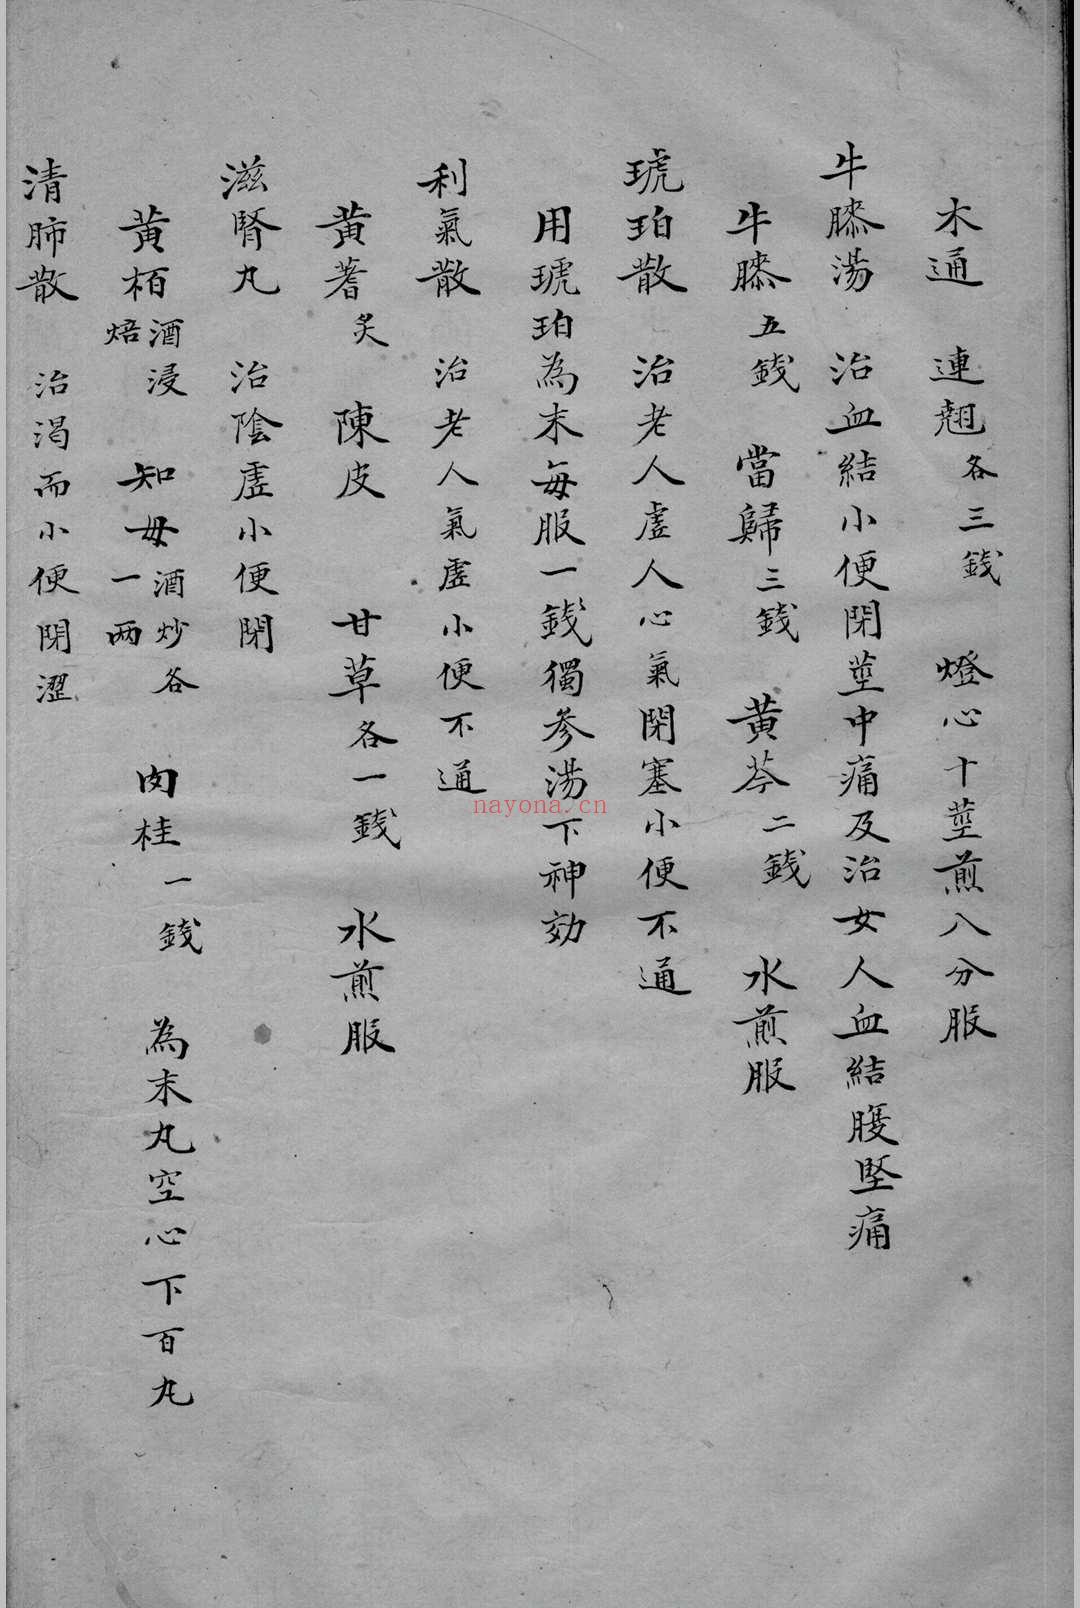 木通　連翹各三錢　燈心十莖煎八分服
牛膝湯　治血結小便閉莖中痛及治女人血結腹堅痛
牛膝五錢　當歸三錢　黃芩二錢　水煎服
琥珀散　治老人虛人心氣閉塞小便不通
用琥珀為末每服一錢獨參湯下神効
利氣散　治老人氣虛小便不通
黃蓍炙　陳皮　甘草各一錢　水煎服
滋腎丸　治陰虛小便閉
黃栢酒浸焙　知母酒炒各一两　肉桂一錢　為末丸空心下百丸
清肺散　治渴而小便閉澀
nayona.cn